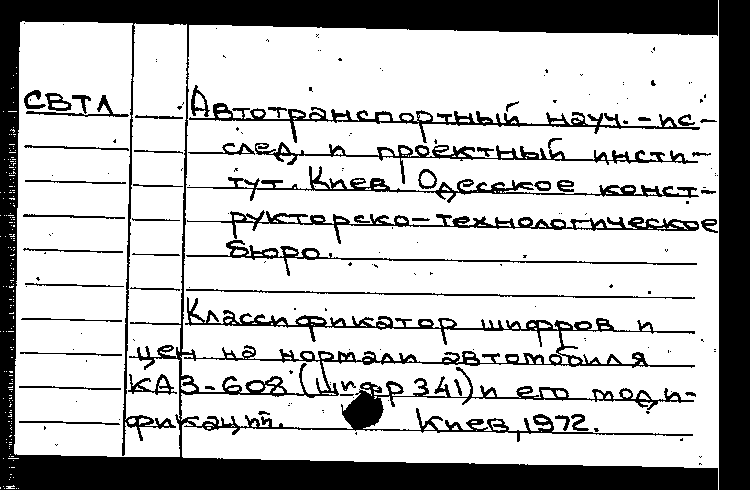 СВТЛ Автотранспортный науч.-ис-
след. и проектный инсти-
тут. Киев. Одесское конст-
рукторско-технологическое
бюро.
Классификатор шифров и
цен на нормали автомобиля
КАЗ-608 (шифр 341) и его моди-
фикаций. Киев, 1972.